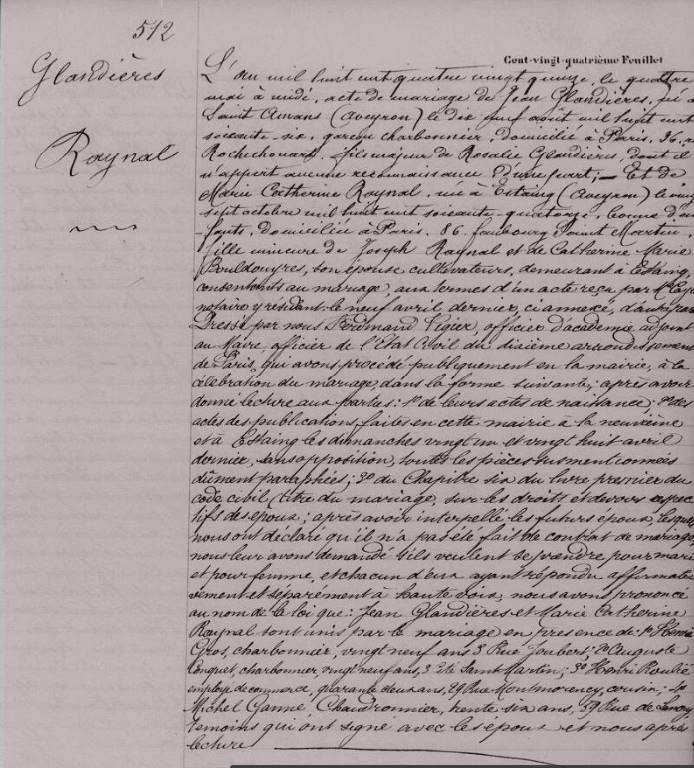 512
Cent-vingt-quatrième Feuillet
Glandières
Raynal
L'an mil huit cent quatre vingt quinze, le quatre
mai à midi, acte de mariage de Jean Glandières, né à
Saint Amans (Aveyron) le dix neuf août mil huit cent
soixante-six, garçon charbonnier, domicilié à Paris, 36, r
Rochechouart, fils majeur de Rosalie Glandières, dont il
n'appert aucune reconnaissance D'une part; — Et de
Marie Catherine Raynal, née à Estaing (Aveyron) le vingt
sept octobre mil huit cent soixante-quatorze, bonne d'en
-fants, domiciliée à Paris, 86, faubourg Saint Martin,
fille mineure de Joseph Raynal et de Catherine Marie
son épouse cultivateurs, demeurant à Estaing,
consentants au mariage, aux termes d'un acte reçu par Me
notaire y résidant le neuf avril dernier, ci annexé, d'autre part
Dressé par nous Ferdinand Vigier, officier d'académie adjoint
au Maire, officier de l'Etat Civil du dixième arrondissement
de Paris, qui avons procédé publiquement en la mairie, à la
célébration du mariage, dans la forme suivante; après avoir
donné lecture aux parties: 1º de leurs actes de naissance; 2º des
actes des publications, faites en cette mairie à la neuvième
et à Estaing les dimanches vingt un et vingt huit avril
dernier, sans opposition, toutes les pièces susmentionnées
dûment paraphées; 3º du Chapitre six du livre premier du
code civil (titre du mariage) sur les droits et devoirs respec
tifs des époux; après avoir interpellé les futurs époux, lesquels
nous ont déclaré qu'il n'a pas été fait de contrat de mariage,
nous leur avons demandé s'ils veulent se prendre pour mari
et pour femme, et chacun d'eux ayant répondu affirmati
vement et séparément à haute voix, nous avons prononcé
au nom de la loi que: Jean Glandières et Marie Catherine
Raynal sont unis par le mariage en présence de: 1º Henri
Gros, charbonnier, vingt neuf ans, 3 Rue Joubert; 2º Auguste
Conquet, charbonnier, vingt neuf ans, 3 Cité Saint Martin; 3º Henri
employé de commerce, quarante deux ans, 29 Rue Montmorency, cousin; 4º
Michel Ganne Chaudronnier, trente six ans, 39 Rue de
témoins qui ont signé avec les époux et nous après
lecture